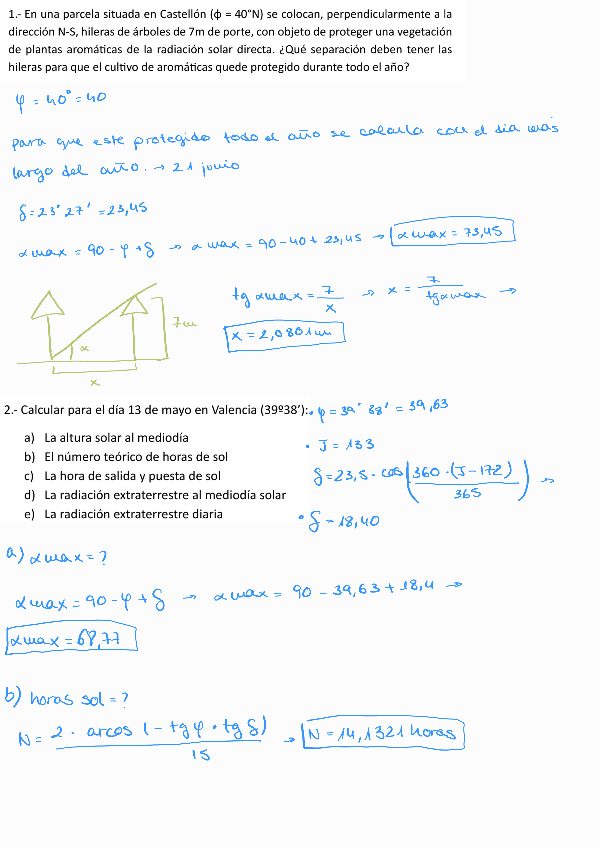 1.- En una parcela situada en Castellón (ϕ = 40°N) se colocan, perpendicularmente a la
dirección N-S, hileras de árboles de 7m de porte, con objeto de proteger una vegetación
de plantas aromáticas de la radiación solar directa. ¿Qué separación deben tener las
hileras para que el cultivo de aromáticas quede protegido durante todo el año?
φ = 40° = 40
para que este protegido todo el año se calcula con el dia mas
largo del año. → 21 junio
δ = 23° 27' = 23,45
α max = 90 - φ + δ → α max = 90 - 40 + 23,45 → α max = 73,45
tg α max = 7/x → x = 7/tg α max →
x = 2,0801 m
7m
α
x
2.- Calcular para el día 13 de mayo en Valencia (39º38'): • φ = 39° 38' = 39,63
a) La altura solar al mediodía
b) El número teórico de horas de sol
c) La hora de salida y puesta de sol
d) La radiación extraterrestre al mediodía solar
e) La radiación extraterrestre diaria
• J = 133
δ = 23,5 · cos (360 · (J - 172) / 365) →
• δ = 18,40
a) α max = ?
α max = 90 - φ + δ → α max = 90 - 39,63 + 18,4 →
α max = 68,77
b) horas sol = ?
N = 2 · arcos (- tg φ · tg δ) / 15 → N = 14,1321 horas